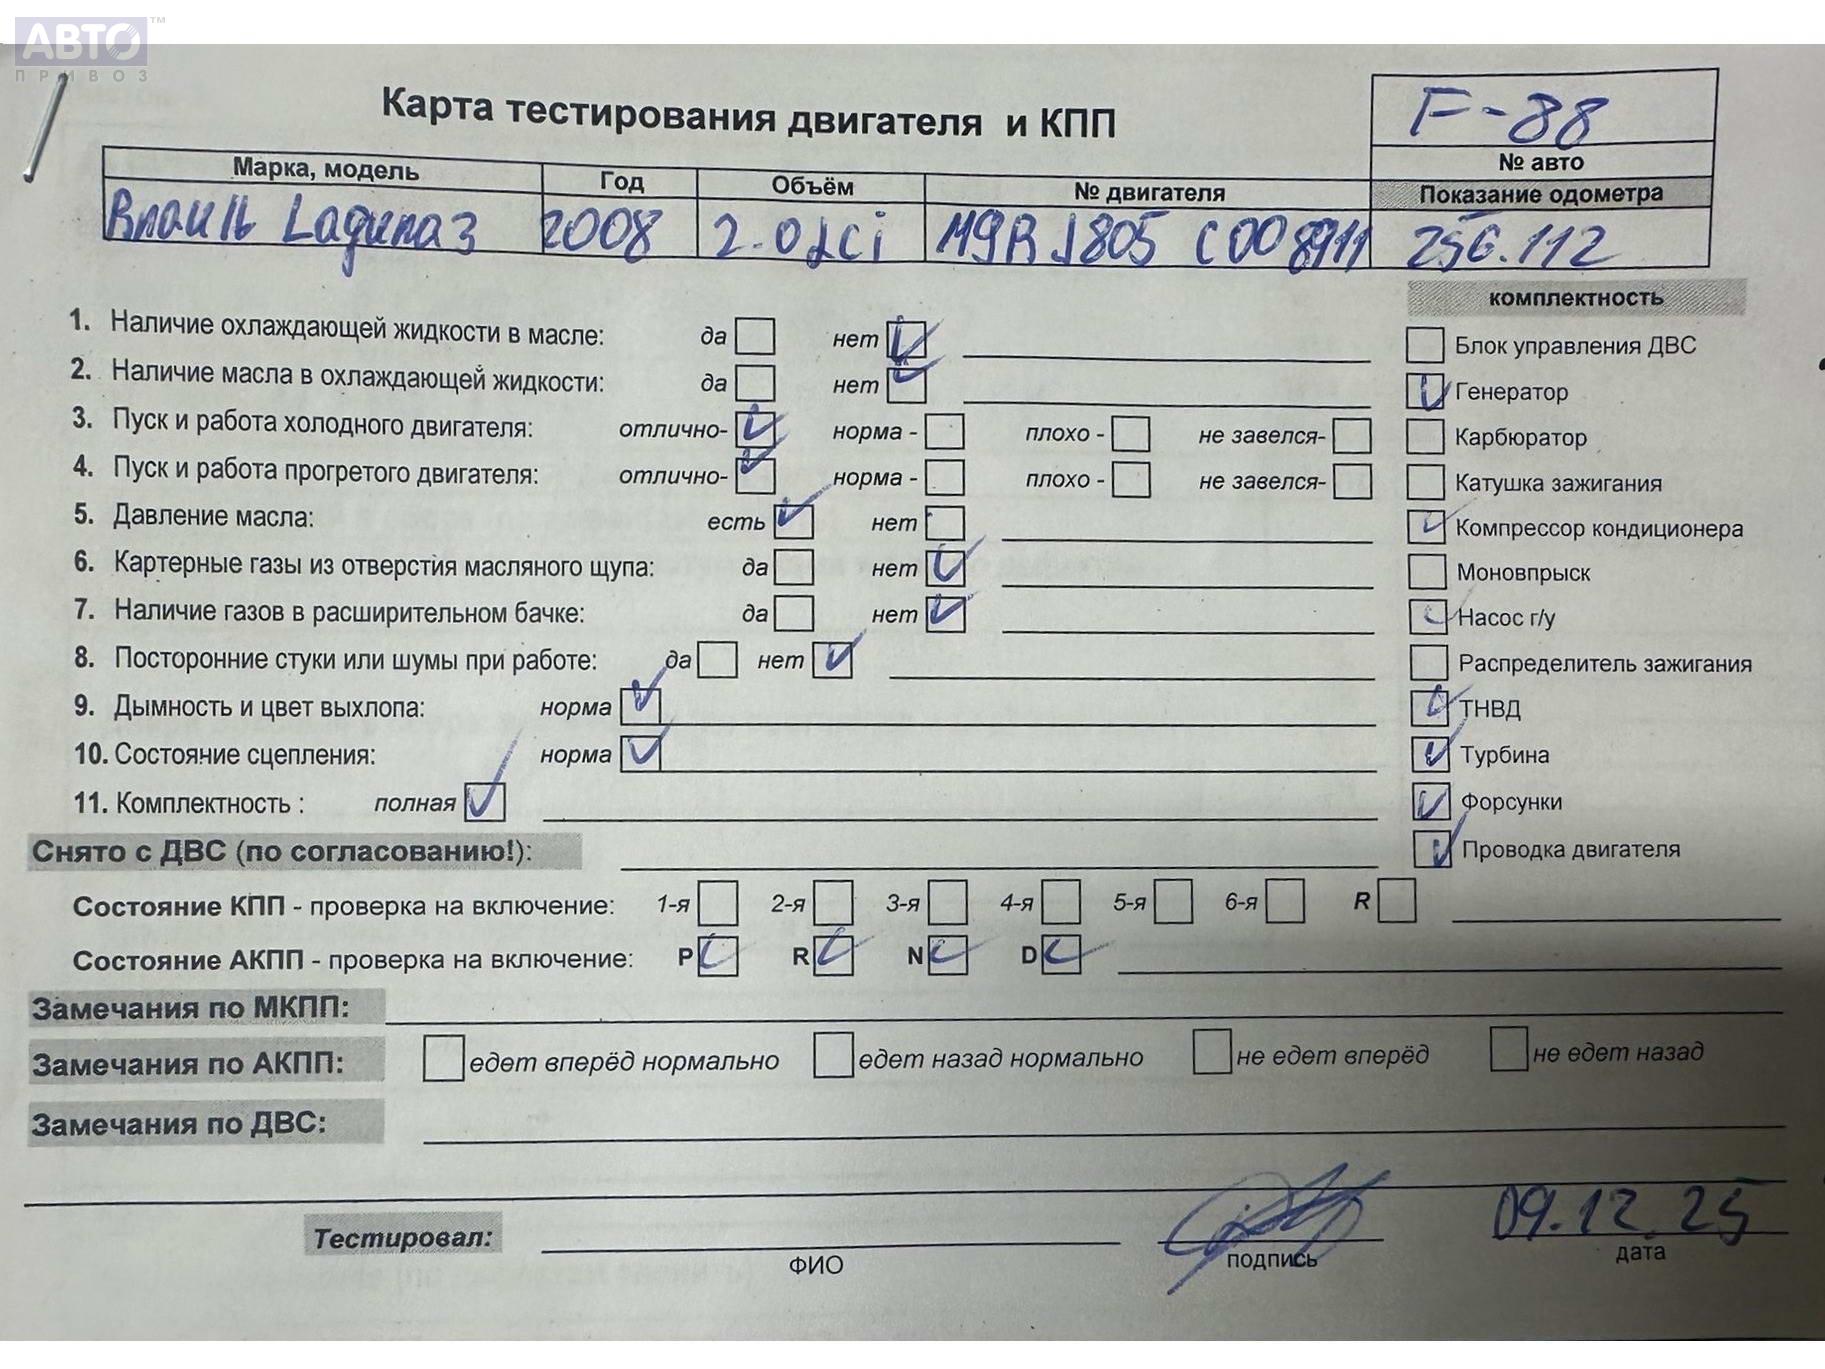 АВТО™
ПРИВОЗ
Карта тестирования двигателя и КПП
F-88
№ авто
Марка, модель Год Объём № двигателя Показание одометра
Laguna 3 2008 2.0 dci M9R J805 C008911 256.112
комплектность
1. Наличие охлаждающей жидкости в масле: да нет
Блок управления ДВС
2. Наличие масла в охлаждающей жидкости: да нет
Генератор
3. Пуск и работа холодного двигателя: отлично- норма - плохо - не завелся-
Карбюратор
4. Пуск и работа прогретого двигателя: отлично- норма - плохо - не завелся-
Катушка зажигания
5. Давление масла: есть нет
Компрессор кондиционера
6. Картерные газы из отверстия масляного щупа: да нет
Моновпрыск
7. Наличие газов в расширительном бачке: да нет
Насос г/у
8. Посторонние стуки или шумы при работе: да нет
Распределитель зажигания
9. Дымность и цвет выхлопа: норма
ТНВД
10. Состояние сцепления: норма
Турбина
11. Комплектность : полная
Форсунки
Снято с ДВС (по согласованию!):
Проводка двигателя
Состояние КПП - проверка на включение: 1-я 2-я 3-я 4-я 5-я 6-я R
Состояние АКПП - проверка на включение: P R N D
Замечания по МКПП:
Замечания по АКПП: едет вперёд нормально едет назад нормально не едет вперёд не едет назад
Замечания по ДВС:
Тестировал: 09.12.25
ФИО подпись дата